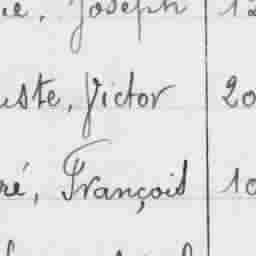 ie, Joseph 12
uste, Victor 20
ré, François 10